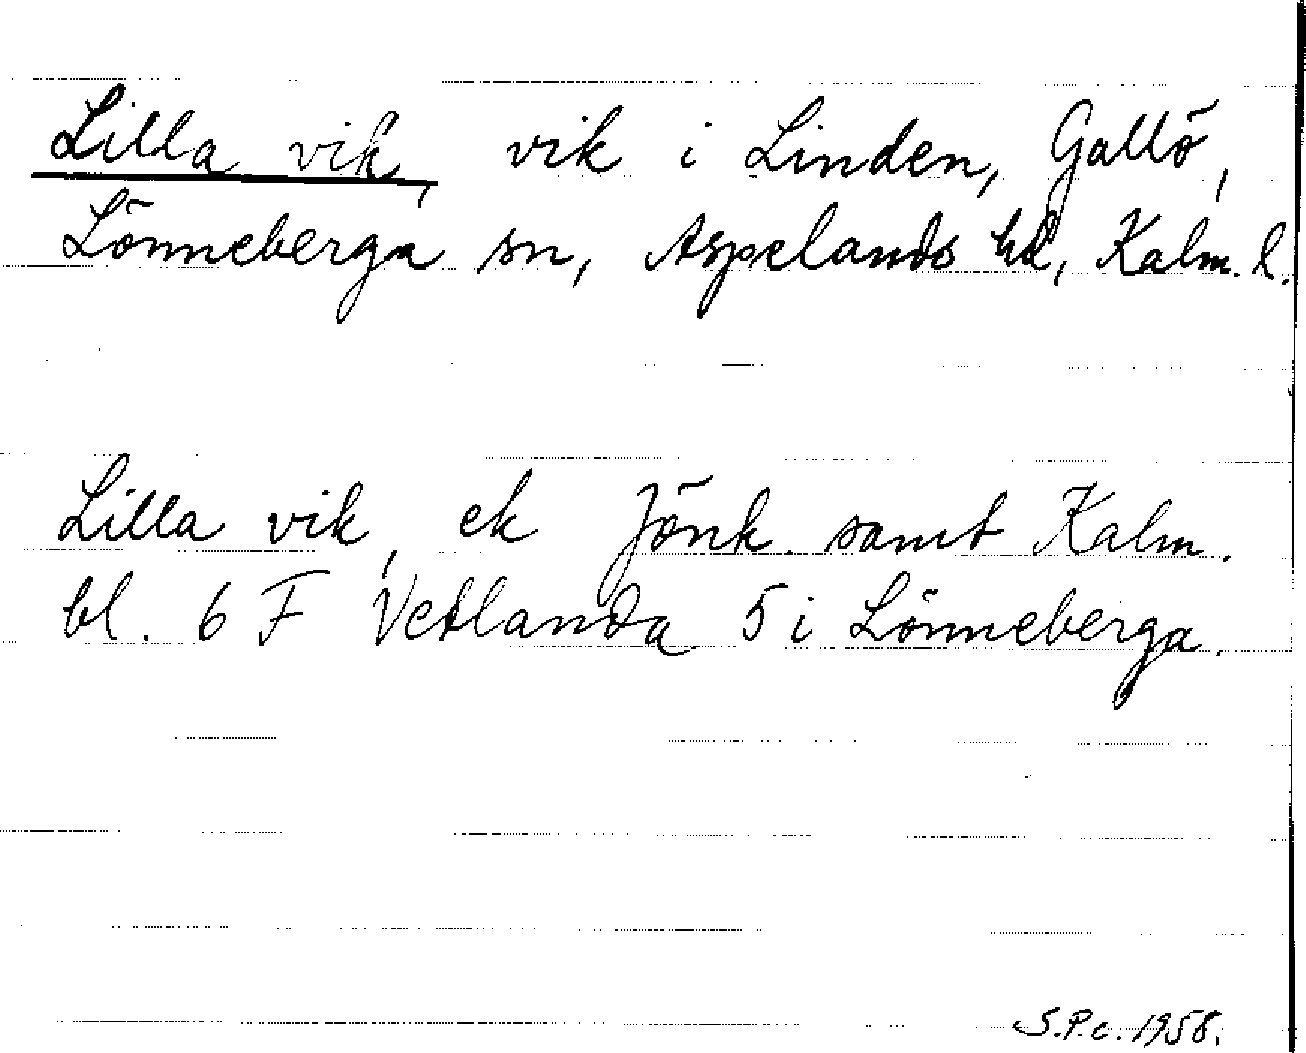 Lilla vik, vik i Linden, Gallö,
Lönneberga sn, Aspelands hd, Kalm. l.
Lilla vik, ek Jönk. samt Kalm.
bl. 6 F Vetlanda 5 i Lönneberga.
S.P.c. 1958.